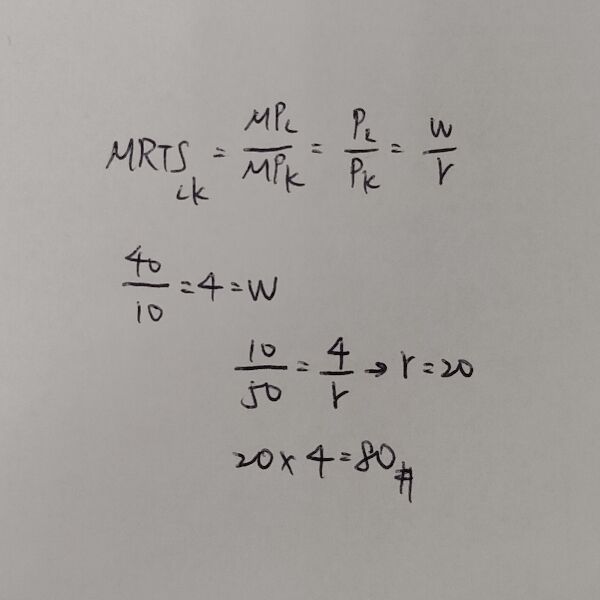 MRTS_LK = MP_L/MP_K = P_L/P_K = w/r
40/10 = 4 = W
10/50 = 4/r → r = 20
20 × 4 = 80 #